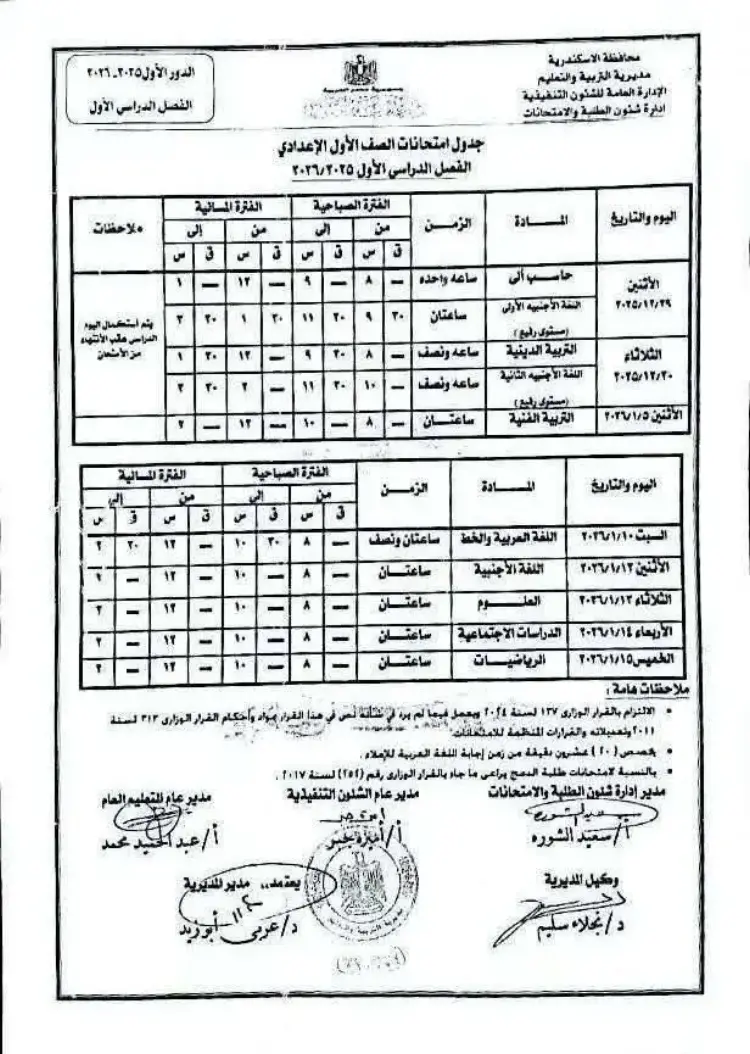 محافظة الاسكندرية
مديرية التربية والتعليم
الإدارة العامة للشئون التنفيذية
إدارة شئون الطلبة والامتحانات
الدور الأول ٢٠٢٥ـ ٢٠٢٦
الفصل الدراسي الأول
جدول امتحانات الصف الأول الإعدادي
الفصل الدراسي الأول ٢٠٢٦/٢٠٢٥
اليوم والتاريخ المــادة الزمن الفترة الصباحية الفترة المسائية ملاحظات
من إلى من إلى
ق س ق س ق س ق س
الأثنين ٢٠٢٥/١٢/٢٩ حاسب ألى ساعه واحده — ٨ — ٩ — ١٢ — ١
اللغة الأجنبيه الأولى (مستوى رفيع) ساعتان ٣٠ ٩ ٣٠ ١١ ٣٠ ١ ٣٠ ٣
الثلاثاء ٢٠٢٥/١٢/٣٠ التربية الدينية ساعه ونصف — ٨ ٣٠ ٩ — ١٢ ٣٠ ١
اللغة الأجنبيه الثانية (مستوى رفيع) ساعه ونصف — ١٠ ٣٠ ١١ — ٢ ٣٠ ٣
الأثنين ٢٠٢٦/١/٥ التربية الفنية ساعتــان — ٨ — ١٠ — ١٢ — ٢
يتم أستكمال اليوم
الدراسى عقب الأنتهاء
من الأمتحان
اليوم والتاريخ المــادة الزمــن الفترة الصباحية الفترة المسائية
من إلى من إلى
ق س ق س ق س ق س
السبت ٢٠٢٦/١/١٠ اللغة العربية والخط ساعتان ونصف — ٨ ٣٠ ١٠ — ١٢ ٣٠ ٢
الأثنين ٢٠٢٦/١/١٢ اللغة الأجنبية ساعتــان — ٨ — ١٠ — ١٢ — ٢
الثلاثاء ٢٠٢٦/١/١٣ العلــوم ساعتــان — ٨ — ١٠ — ١٢ — ٢
الأربعاء ٢٠٢٦/١/١٤ الدراسات الاجتماعية ساعتــان — ٨ — ١٠ — ١٢ — ٢
الخميس ٢٠٢٦/١/١٥ الرياضيــات ساعتــان — ٨ — ١٠ — ١٢ — ٢
ملاحظات هامة :
• الالتزام بالقرار الوزارى ١٣٧ لسنة ٢٠٢٤ ويعمل فيما لم يرد في شأنه نص في هذا القرار بمواد وأحكام القرار الوزارى ٣١٣ لسنة
٢٠١١ وتعديلاته والقرارات المنظمة للامتحانات.
• يخصص (٢٠) عشرون دقيقة من زمن إجابة اللغة العربية للإملاء .
• بالنسبة لامتحانات طلبة الدمج يراعى ما جاء بالقرار الوزارى رقم (٢٥٢) لسنة ٢٠١٧ .
مدير إدارة شئون الطلبة والامتحانات
أ/ سعيد الشوره
مدير عام الشئون التنفيذية
أ/ أميرة جبر
مدير عام للتعليم العام
أ/ عبد الحميد محمد
وكيل المديرية
د/ نجلاء سليم
يعتمد،، مدير المديرية
د/ عربى أبوزيد